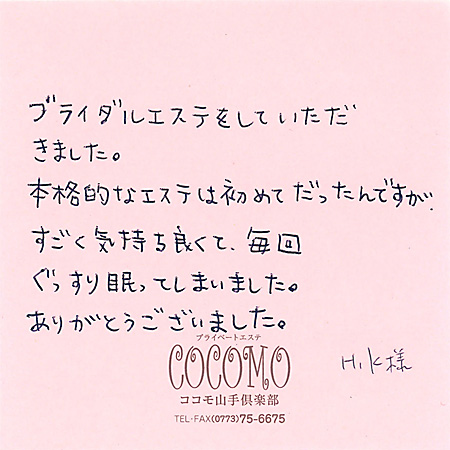 ブライダルエステをしていただ
きました。
本格的なエステは初めてだったんですが
すごく気持ち良くて、毎回
ぐっすり眠ってしまいました。
ありがとうございました。
プライベートエステ
COCOMO
ココモ山手倶楽部
TEL・FAX(0773)75-6675
H.K様